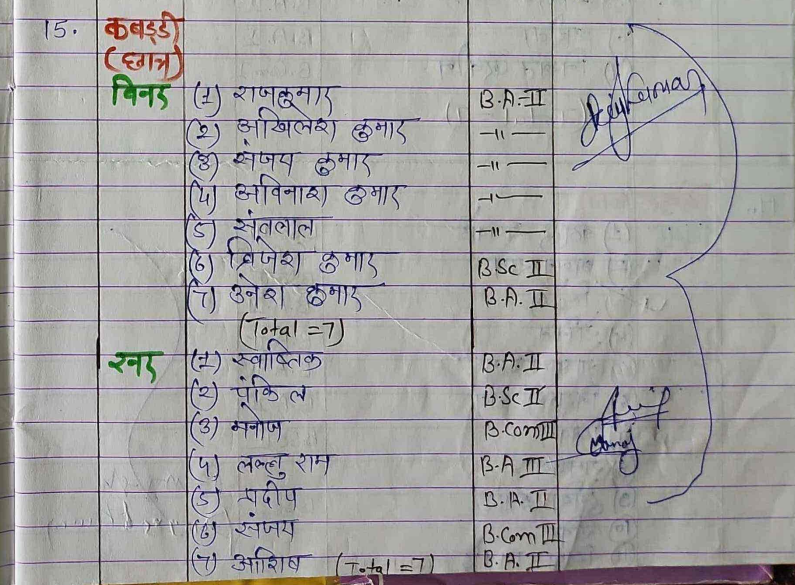 15. कबड्डी
(छात्र)
विनर (1) राजकुमार B.A.II Rajkumar
(2) अखिलेश कुमार -11-
(3) संजय कुमार -11-
(4) अविनाश कुमार -11-
(5) संतलाल -11-
(6) ब्रिजेश कुमार B.Sc II
(7) उमेश कुमार B.A. II
(Total =7)
रनर (1) स्वास्तिक B.A. II
(2) पंकिल B.Sc II
(3) मनोज B.Com III Manoj
(4) लल्लु राम B.A III
(5) प्रदीप B.A. II
(6) संजय B.Com III
(7) आशिष (Total =7) B.A. II